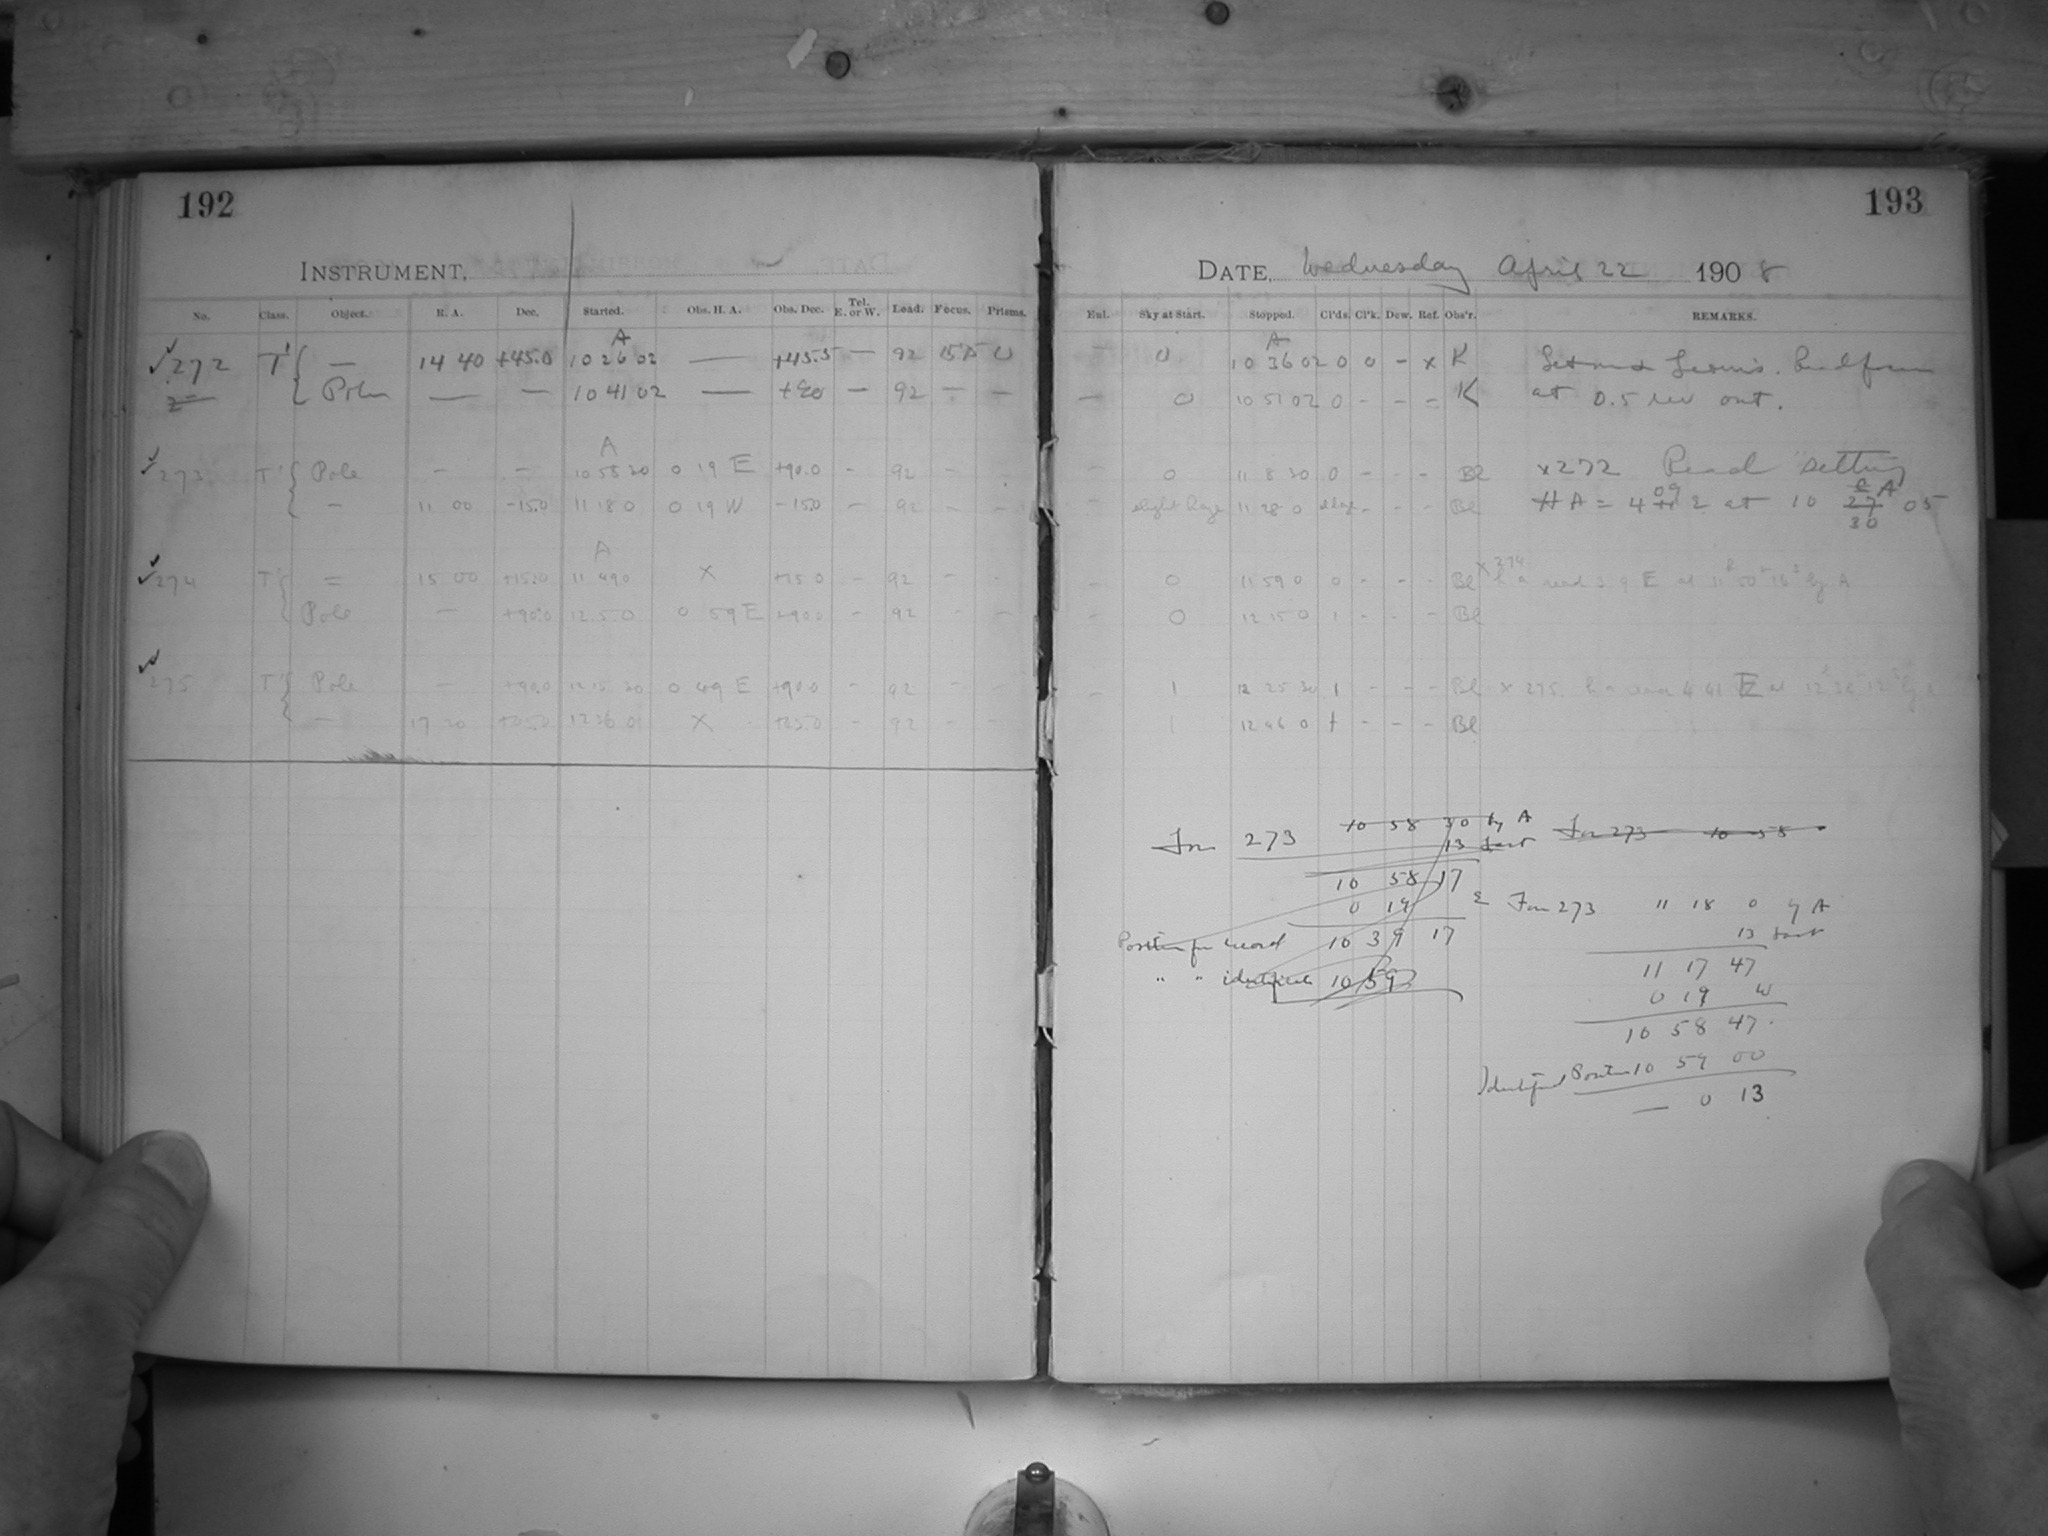 192
INSTRUMENT,
No. Class. Object. R. A. Dec. Started. Obs. H. A. Obs. Dec. Tel. E. or W. Load. Focus. Prisms.
A
272 T' — 14 40 +45.0 10 26 02 — +45.5 — 92 15.5 0
2 Pole — — 10 41 02 — +90 — 92 — —
A
273 T' Pole — — 10 58 30 0 19 E +90.0 - 92 - -
— 11 00 -15.0 11 18 0 0 19 W -15.0 - 92 - -
A
274 T' = 15 00 +15.0 11 49 0 X +15.0 - 92 - -
Pole — +90.0 12 5 0 0 59 E +90.0 - 92 - -
275 T' Pole — +90.0 12 15 30 0 49 E +90.0 - 92 - -
— 17 20 +45.0 12 36 0 X +45.0 - 92 - -
193
DATE, Wednesday April 22 1908
Eul. Sky at Start. Stopped. Cl'ds. Cl'k. Dew. Ref. Obs'r. REMARKS.
A
— 0 10 36 02 0 0 - x K
— 0 10 51 02 0 - - - K at 0.5 rev out.
0 11 8 30 0 - - - Bl x 272 Read setting
- slight haze 11 28 0 - - - Bl HA = 4 09 E at 10 27 30 05 A
- 0 11 59 0 0 - - - Bl x 274 h a read 3 9 E at 11 50 18 by A
- 0 12 15 0 1 - - - Bl
- 1 12 25 30 1 - - - Bl x 275 h a read 4 41 E at 12
1 12 46 0 1 - - - Bl
For 273 10 58 30 by A For 273 10 58
13 fast
10 58 17
0 19 E For 273 11 18 0 by A
Position for record 10 39 17 13 fast
" " identified 10 59 11 17 47
0 19 W
10 58 47
Identified Position 10 59 00
— 0 13